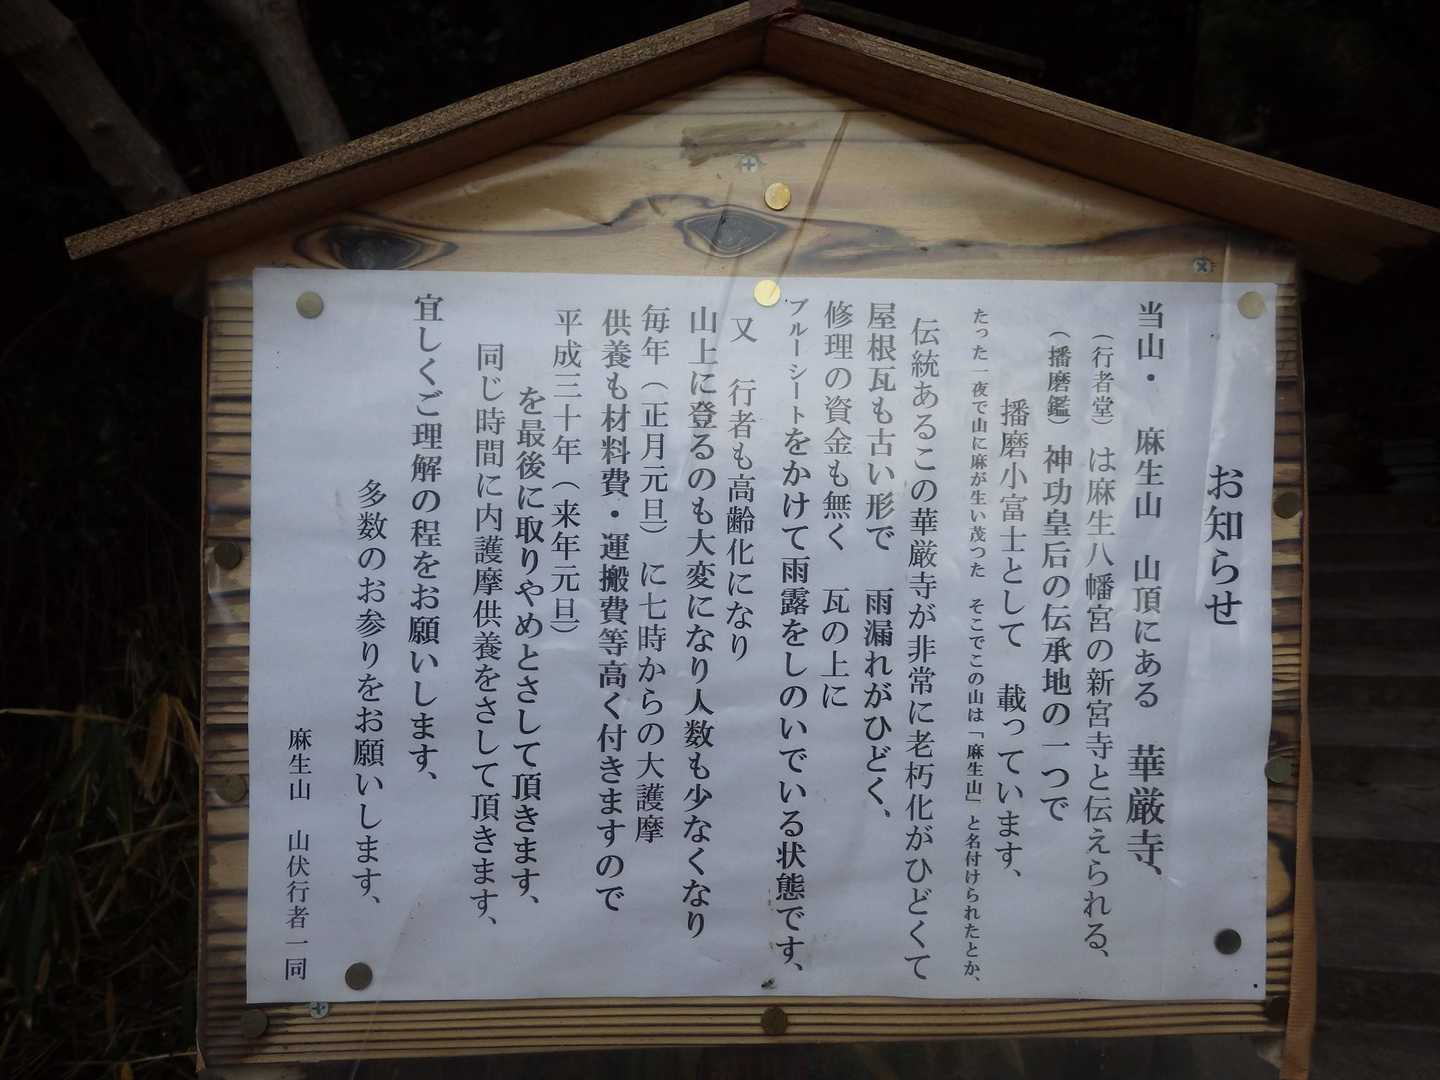 お知らせ
当山・ 麻生山 山頂にある 華厳寺、
（行者堂）は麻生八幡宮の新宮寺と伝えられる、
（播磨鑑）神功皇后の伝承地の一つで
播磨小富士として 載っています、
たった一夜で山に麻が生い茂つた そこでこの山は「麻生山」と名付けられたとか、
伝統あるこの華厳寺が非常に老朽化がひどくて
屋根瓦も古い形で 雨漏れがひどく、
修理の資金も無く 瓦の上に
ブルーシートをかけて雨露をしのいでいる状態です、
又 行者も高齢化になり
山上に登るのも大変になり人数も少なくなり
毎年（正月元旦）に七時からの大護摩
供養も材料費・運搬費等高く付きますので
平成三十年（来年元旦）
を最後に取りやめとさして頂きます、
同じ時間に内護摩供養をさして頂きます、
宜しくご理解の程をお願いします、
多数のお参りをお願いします、
麻生山 山伏行者一同